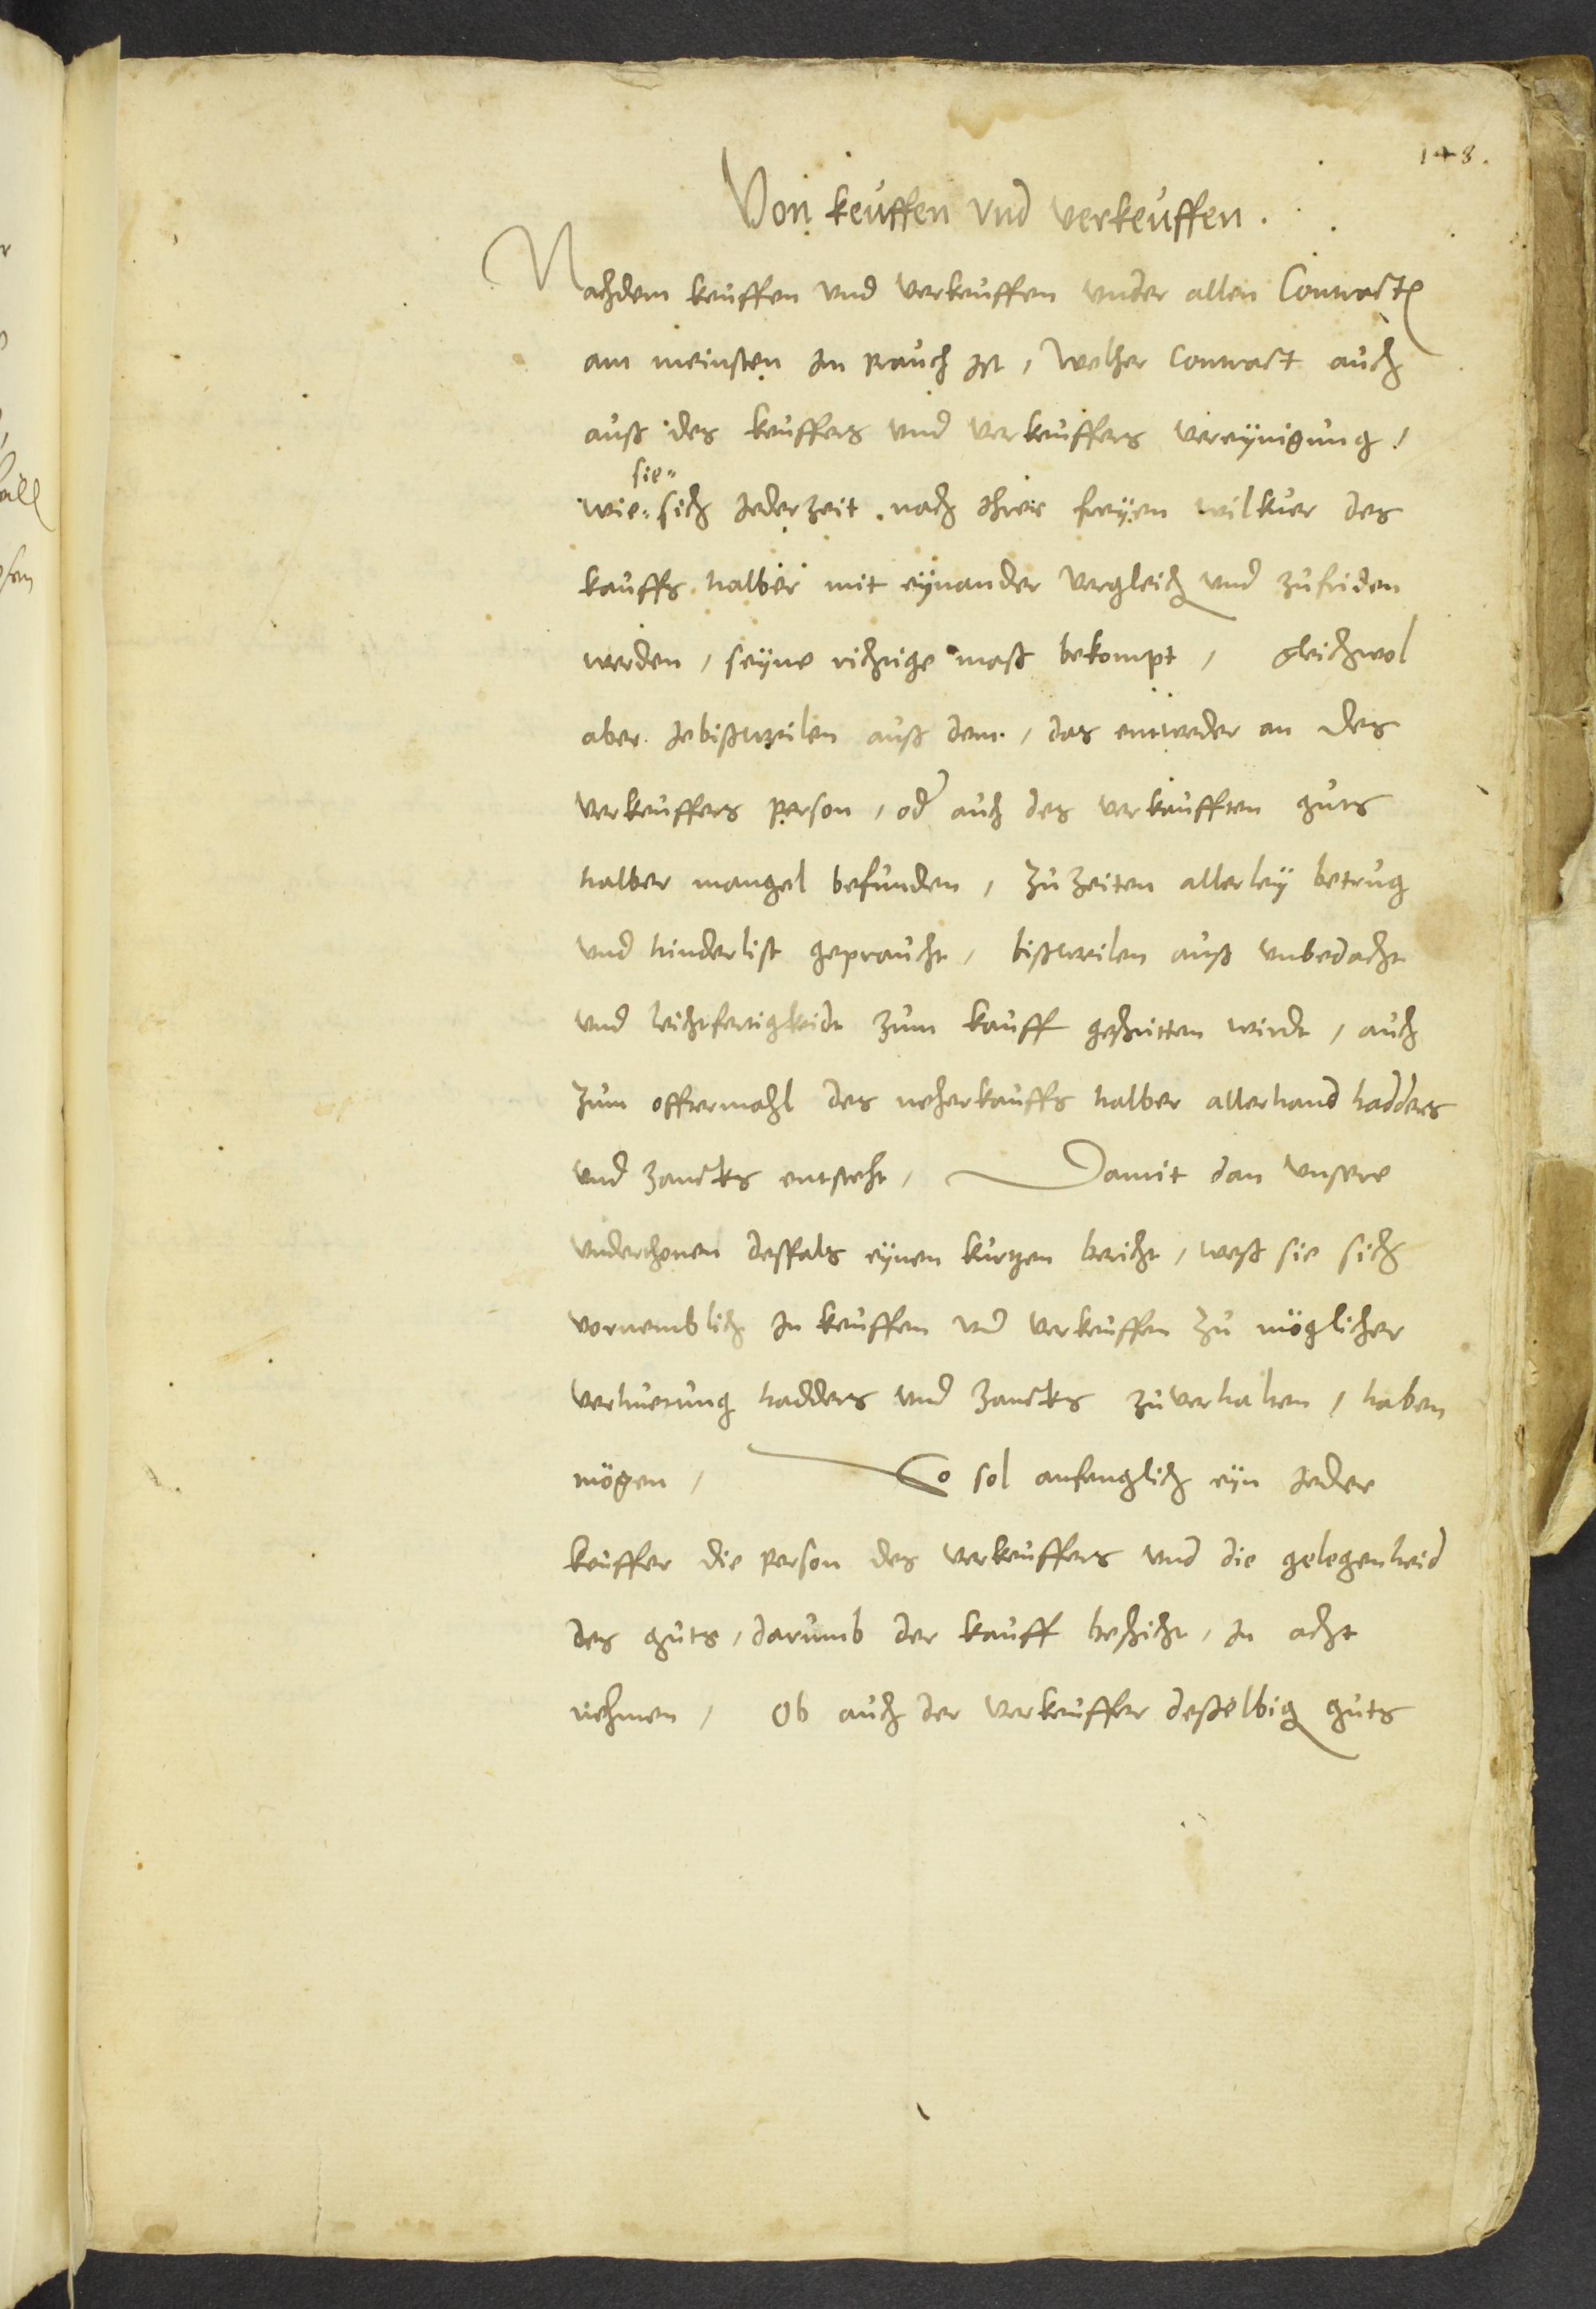 148.
Von keuffen vnd verkeuffen.
Nachdem keuffen vnd verkeuffen vnder allen Contracten
am meinsten Im prauch Ist, Welcher Contract auch
auß des keuffers vnd verkeuffers vereÿnigung,
sie
wie sich Jederzeit nach Ihrer freÿen wilkuer des
kauffs halber mit eÿnander vergleichen vnd zufriden
werden, seÿne richtige maß bekompt, gleichwol
aber Jebißweilen auß dem, das entweder an des
verkeuffers person, oder auch des verkaufften guts
halber mangel befunden, zu zeiten allerleÿ betrug
vnd hinderlist gepraucht, bißweilen auß vnbedacht
vnd leichtfertigkeidt zum kauff geschritten wirdt, auch
zum offtermahl des neherkauffs halber allerhand hadders
vnd zancks entsteht, Damit dan vnsere
vnderthonen desfals eÿnen kurtzen bericht, weß sie sich
vornemblich In keuffen vnd verkeuffen zu möglicher
verhuetung hadders vnd zancks zuverhalten, haben
mögen, So sol anfenglich eÿn Jeder
keuffer die person des verkeuffers vnd die gelegenheid
des guts, darumb der kauff beschicht, In acht
nehmen, Ob auch der verkeuffer desselbigen guts